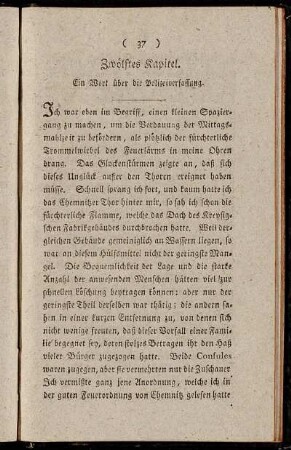 ( 37 )
Zwölftes Kapitel.
Ein Wort über die Polizeiverfassung.
Ich war eben im Begriff, einen kleinen Spazier-
gang zu machen, um die Verdauung der Mittags-
mahlzeit zu befördern, als plötzlich der fürchterliche
Trommelwirbel des Feuerlärms in meine Ohren
drang. Das Glockenstürmen zeigte an, daß sich
dieses Unglück außer den Thoren ereignet haben
müsse. Schnell sprang ich fort, und kaum hatte ich
das Chemnitzer Thor hinter mir, so sah ich schon die
fürchterliche Flamme, welche das Dach des Kreysigi-
schen Fabrikgebäudes durchbrochen hatte. Weil der-
gleichen Gebäude gemeiniglich an Wassern liegen, so
war an diesem Hülfsmittel nicht der geringste Man-
gel. Die Bequemlichkeit der Lage und die starke
Anzahl der anwesenden Menschen hätten viel zur
schnellen Löschung beytragen können; aber nur der
geringste Theil derselben war thätig; die andern sa-
hen in einer kurzen Entfernung zu, von denen sich
nicht wenige freuten, daß dieser Vorfall einer Fami-
lie begegnet sey, deren stolzes Betragen ihr den Haß
vieler Bürger zugezogen hatte. Beide Consules
waren zugegen, aber sie vermehrten nur die Zuschauer
Ich vermißte ganz jene Anordnung, welche ich in
der guten Feuerordnung von Chemnitz gelesen hatte